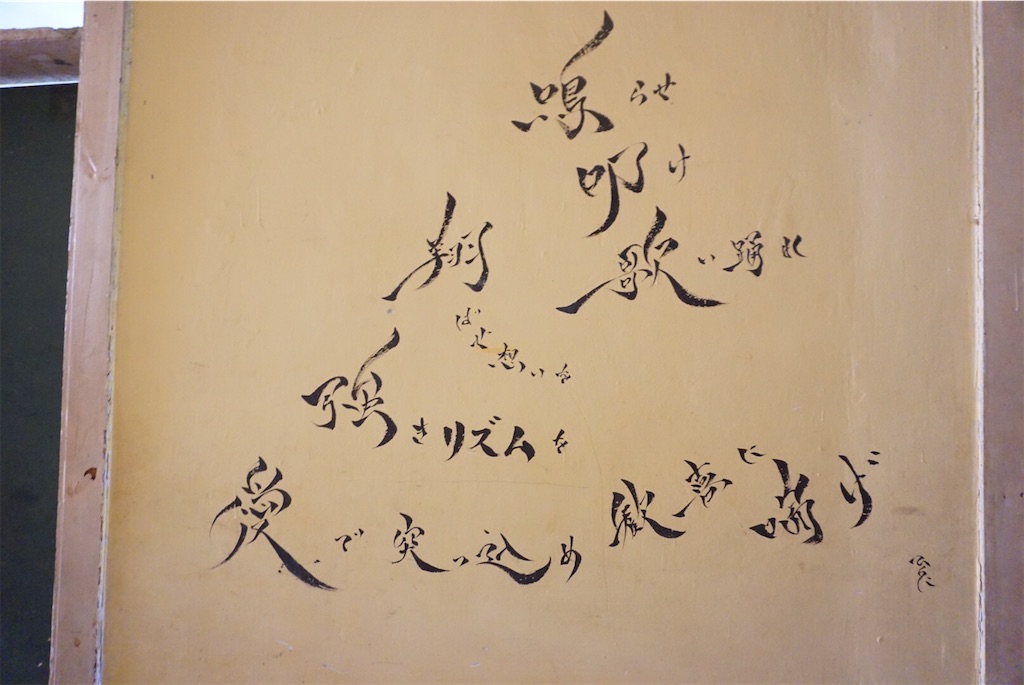 鳴らせ
叩け
歌い踊れ
翔ばせ想いを
強きリズムを
愛で突っ込め
歓喜に